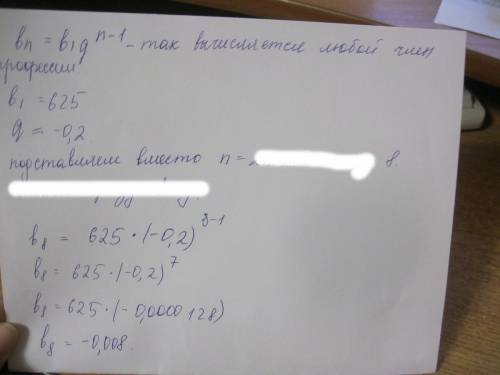 bn = b₁q^n-1 - так вычисляется любой член
прогрессии
b₁ = 625
q = -0,2
подставляем вместо n = 8.
b₈ = 625·(-0,2)^8-1
b₈ = 625·(-0,2)^7
b₈ = 625·(-0,0000128)
b₈ = -0,008.